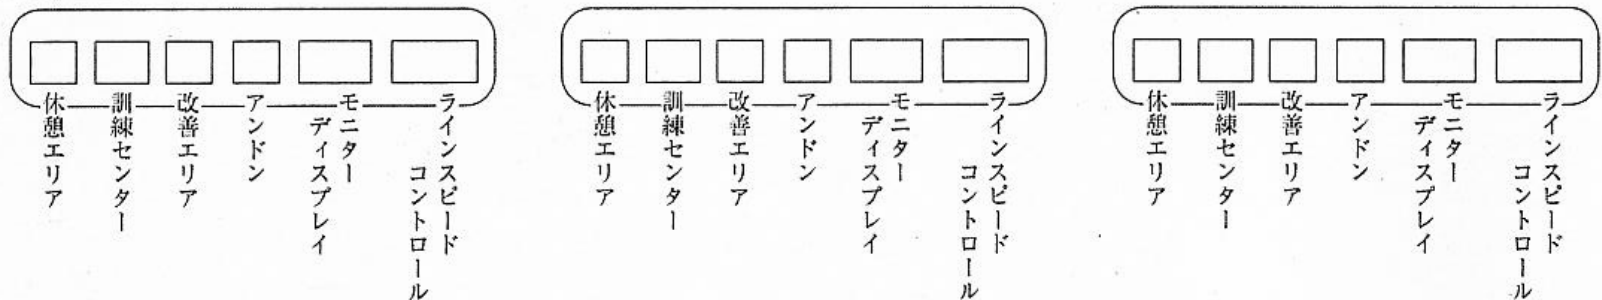 休憩エリア
訓練センター
改善エリア
アンドン
モニター
ディスプレイ
ラインスピード
コントロール
休憩エリア
訓練センター
改善エリア
アンドン
モニター
ディスプレイ
ラインスピード
コントロール
休憩エリア
訓練センター
改善エリア
アンドン
モニター
ディスプレイ
ラインスピード
コントロール